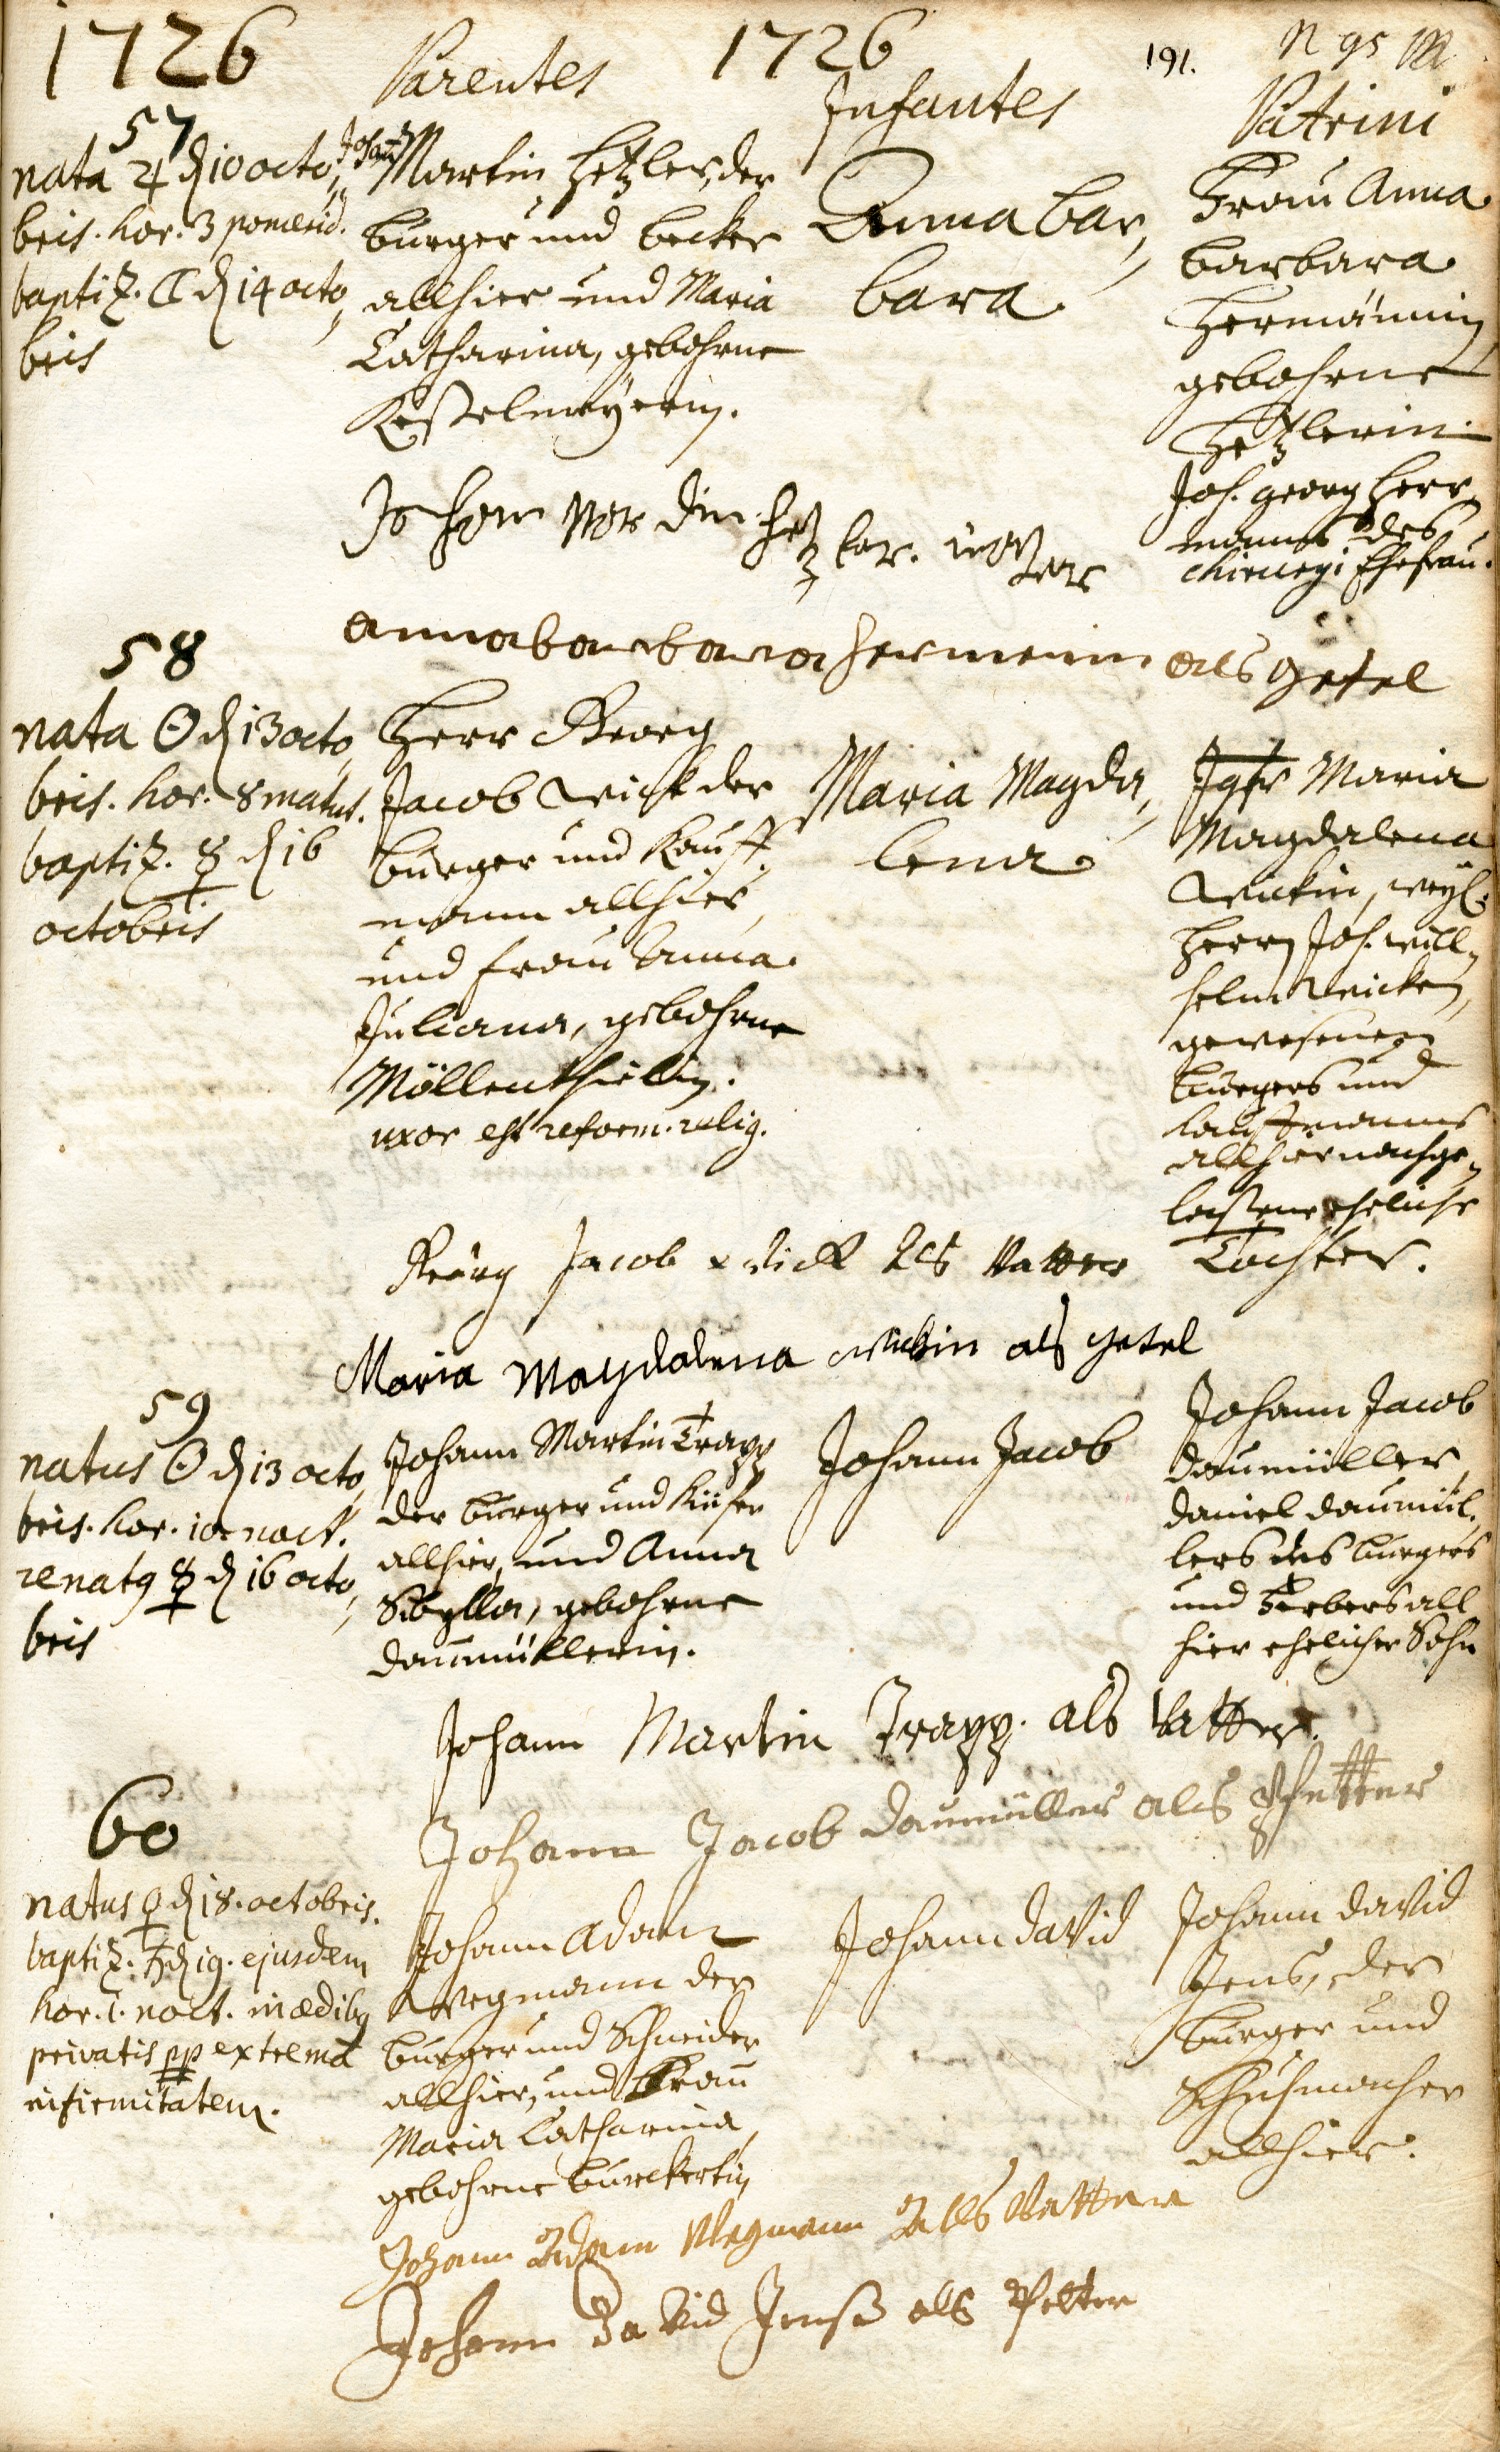 1726 1726 191. N 95 M
Parentes Infantes Patrini
57
nata ♃ d 10 octo,,
bris. hor. 3 pomerid.
baptiz. ☾ d 14 octo,
bris
Johañ
Martin Hetzler, der
burger und becker
allhier und Maria
Catharina, gebohrne
Keßelmeyerin.
Anna Bar,,
bara
Frau Anna
barbara
Hermännin
gebohrne
Hetzlerin
Joh. georg Herr,,
manns des
chirurgi Ehefrau.
Johan Mar din hetz ler. vatter
anna barbara hermenin als getel
58
nata ☉ d 13 octo,
bris. hor. 8 matut.
baptiz. ☿ d 16
octobris
Herr Georg
Jacob Wick der
burger und Kauff,
mann allhier,
und frau Anna
Juliana, gebohrne
Möllenthielin.
uxor est reform. relig.
Maria Magda,,
lena
Jgfr Maria
Magdalena
Wickin, weyl.
Herrn Joh. Will,,
helm Wicken,
gewesenen
burgers und
kauffmanns
allhier nachge,,
laßene eheliche
Tochter.
Georg Jacob Wick als Vatter
Maria Magdalena Wickin als getel
59
natus ☉ d 13 octo,
bris. hor. 10 noct.
renatg ☿ d 16 octo,
bris
Johann Martin Trapp
der burger und Küfer
allhier, und Anna
Sibylla, gebohrne
daumüllerin.
Johann Jacob
Johann Jacob
daumüller,
daniel daumül,
lers des burgers
und Ferbers all
hier ehelicher Sohn
Johann Martin Trapp. als Vatter.
Johann Jacob daumüller als Pfetter
60
natus ♀ d 18. octobris.
baptiz. ♄ d 19. ejusdem
hor. 1. noct. in ædibg
privatis pp extremã
infirmitatem.
Johann Adam
Wegmann der
burger und Schneider
allhier, und Frau
Maria Catharina,
gebohrne burckertin
Johann david
Johann david
Jens, der
burger und
Schuhmacher
allhier.
Johann Adam Wegmann Als Vatter
Johann david Jenß als Petter